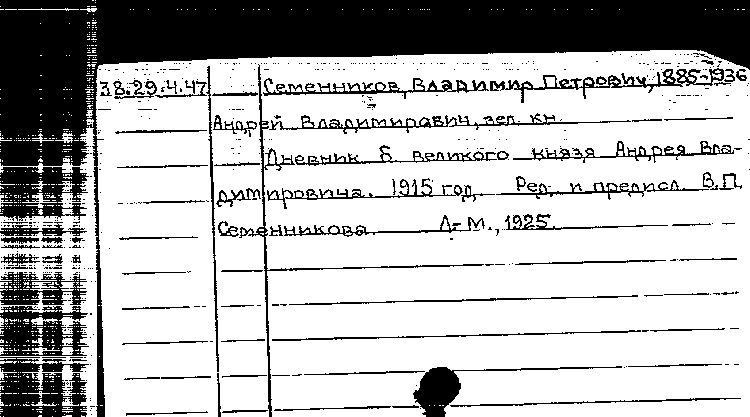 38.29.4.47 Семенников, Владимир Петрович, 1885-1936
Андрей Владимирович, вел. кн.
Дневник б. великого князя Андрея Вла-
димировича. 1915 год. Ред. и предисл. В.П.
Семенникова. Л-М., 1925.